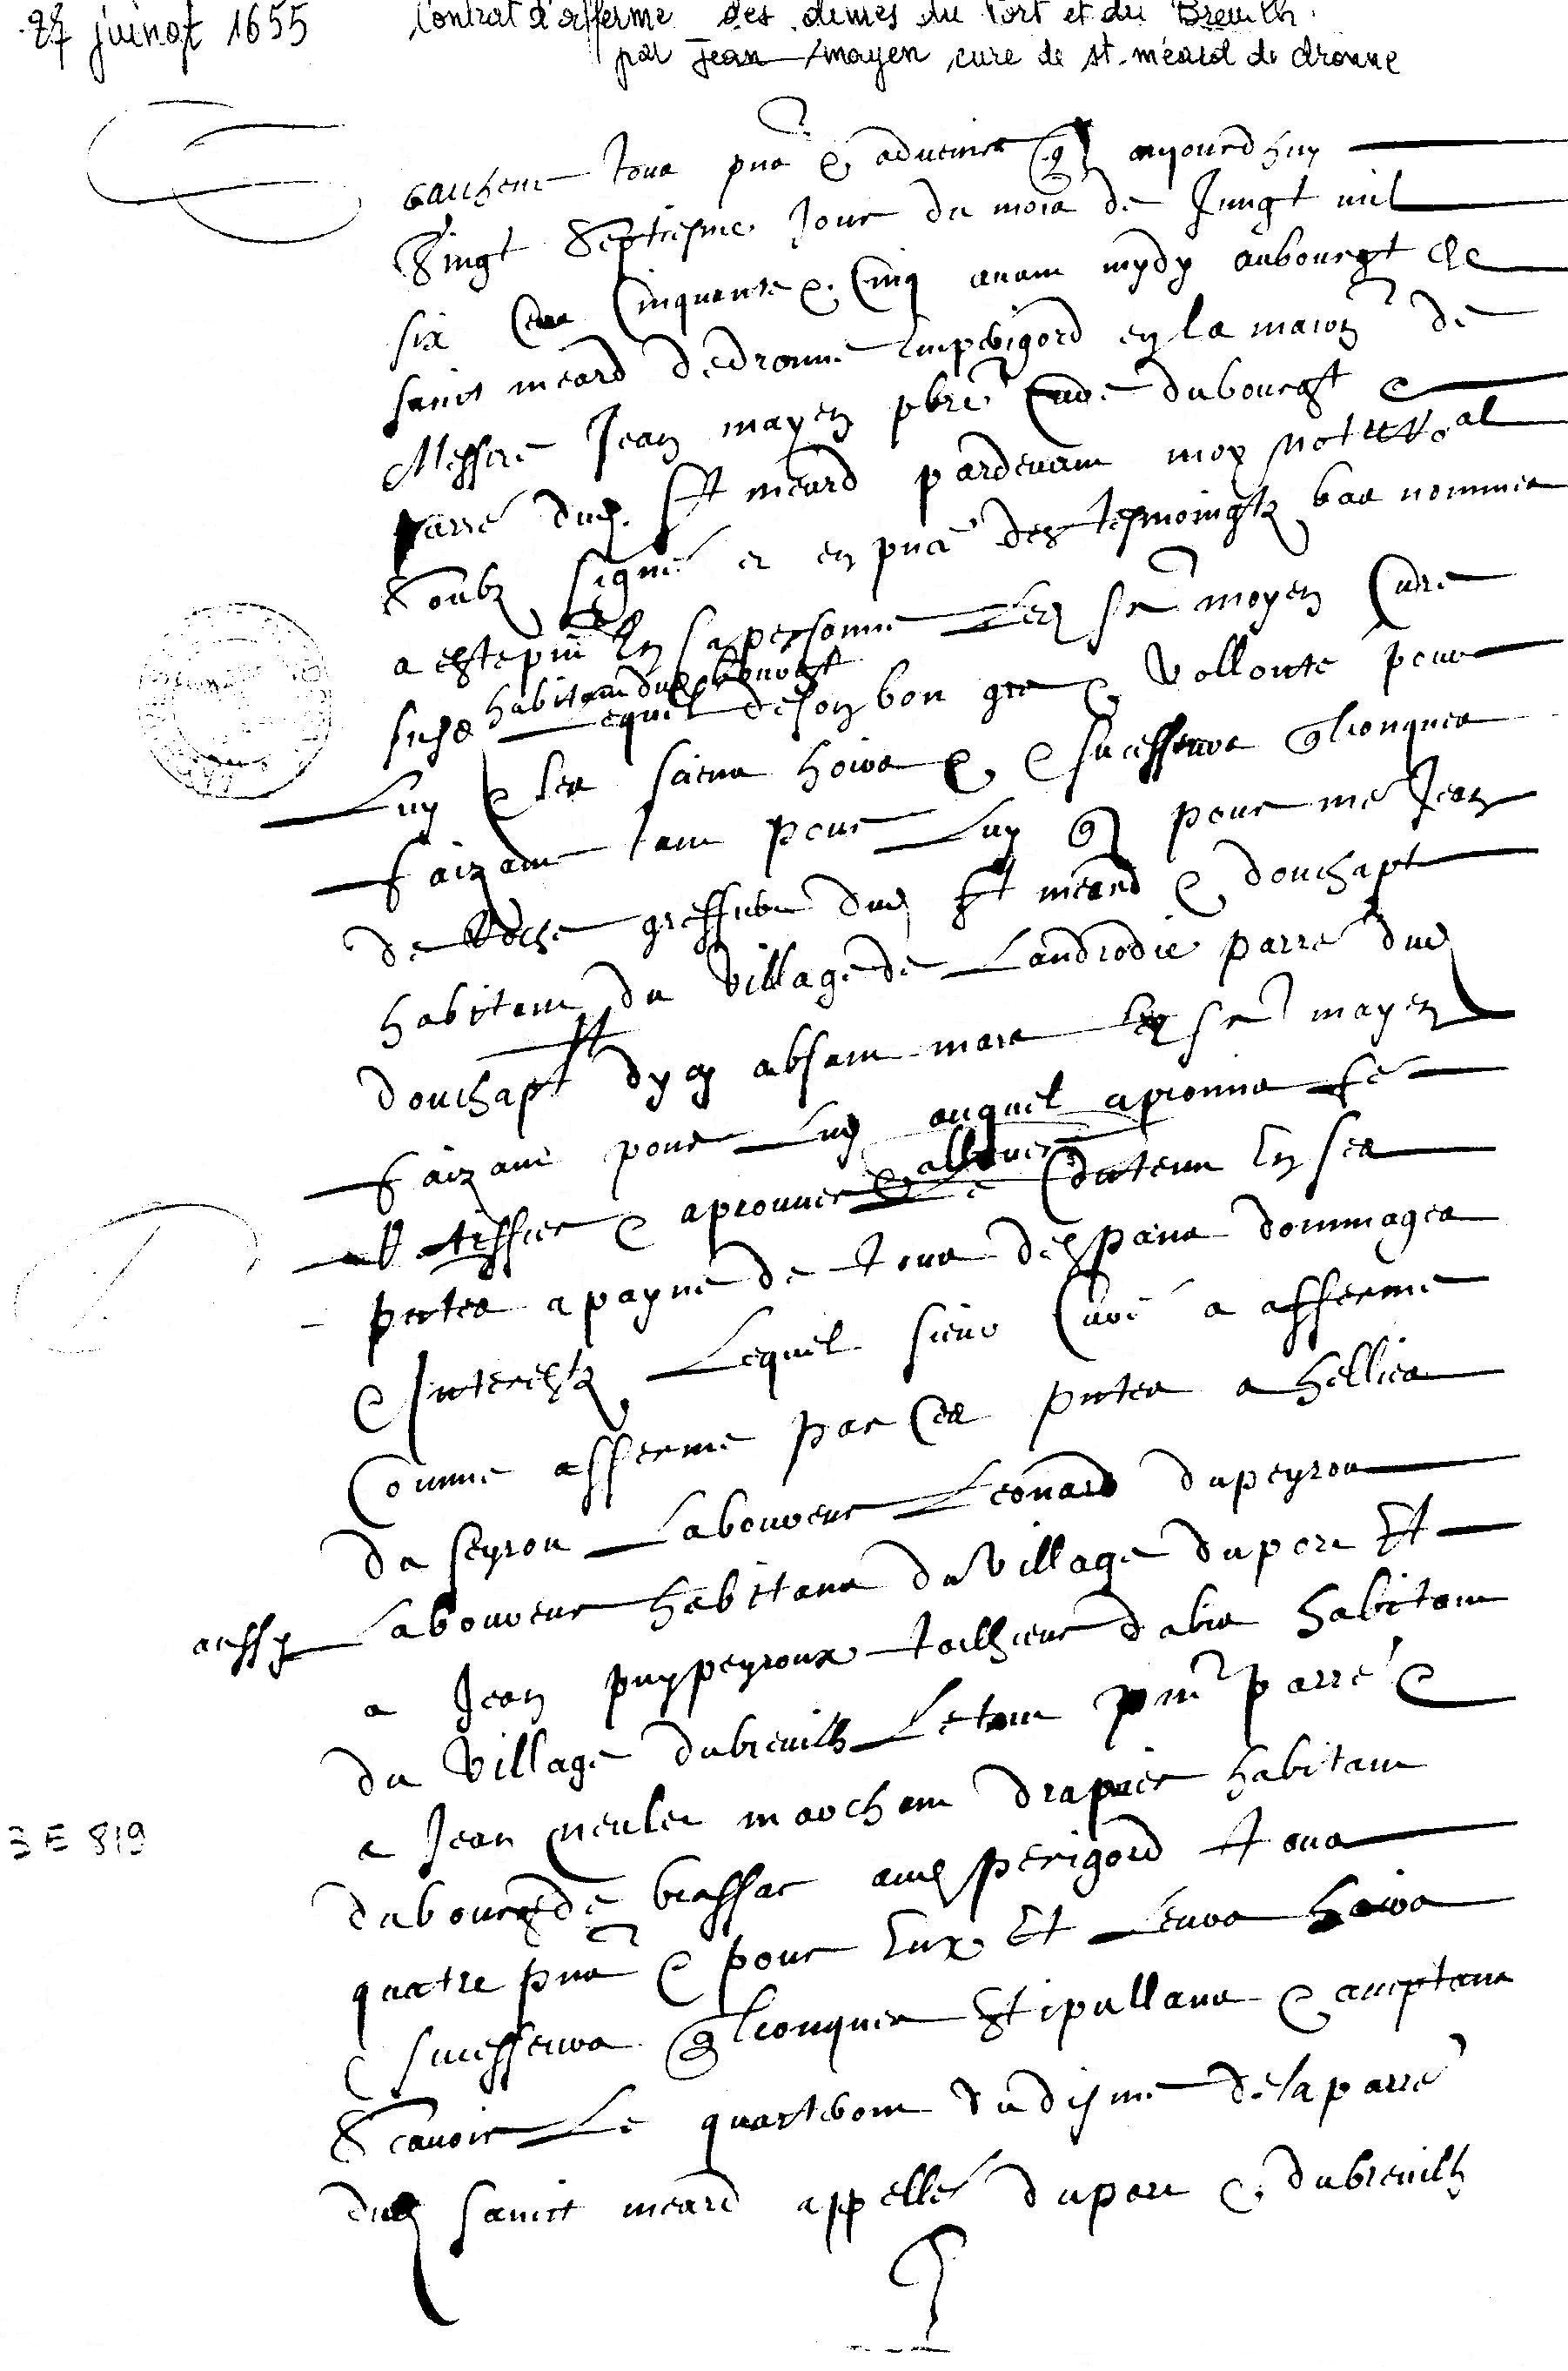 27 juingt 1655 Contrat d'afferme des dimes du Port et du Breuilh
par Jean Moyen cure de st. méard de dronne
Sachent tous pnts & advenir qu aujourdhuy
Vingt Septiesme Jour du mois de Jungt mil
six Cens Cinquante & Cinq avant mydy aubourgt de
sainct meard dedronne En perigord en la maion de
Messire Jean mayen pbre Curé dubourgt &
parre dud St meard pardevant moy Notre Royal
Soubz signé et en pnce des tesmoingtz bas nommes
a esté pnt En sa personne Led sr moyen Curé
habitant dud bourgt
susd Lequel deson bon gre & Vollonté pour
Luy & les siens hoirs & successeurs qlconques
faizant tant pour Luy q pour me Jean
de Roche greffier dud St meard & douchapt
habitant du Village de Landrodie parre dud
douchapt dycy absant mais led sr mayen
faizant pour Luy auquel a promis fe
alloue
Ratiffier & aprouver & Le Contenu En ses
pntes a payne de tous despans dommages
& Interestz Lequel sieur Curé a afferme
Comme afferme par Ces pntes a hellies
du peyrou Laboureur Leonard dupeyrou
Laboureur habitans du Village du port Et
aussy
a Jean puypeyroux tailheur dabis habitant
du Village dubreuilh Letout pnt parre &
a Jean marchant drapier habitant
dubourg de brassac aud perigord tous
quatre pns & pour Eux Et Leurs hoirs
& successeurs qlconques Stipullans & aceptans
Scavoir Le quartevont du disme de la parre
dud sainct meard appellé duport & dubreuilh
3 E 819